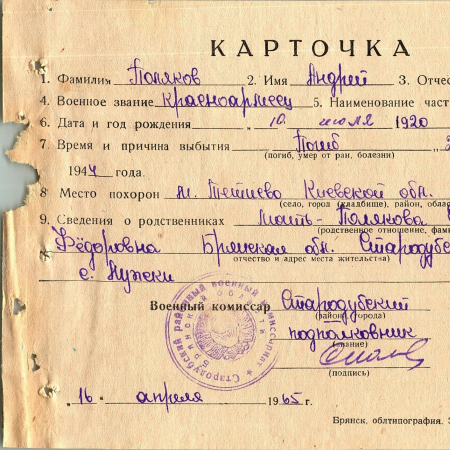 КАРТОЧКА
1. Фамилия Поляков 2. Имя Андрей 3. Отчес
4. Военное звание Красноармеец 5. Наименование част
6. Дата и год рождения 10 июля 1920
7. Время и причина выбытия Погиб
(погиб, умер от ран, болезни)
1944 года.
8 Место похорон м. Тетиево Киевской обл.
(село, город (кладбище), район, облас
9. Сведения о родственниках Мать - Полякова
(родственное отношение, фам
Фёдоровна Брянская обл. Стародуб
отчество и адрес места жительства)
с.
Военный комиссар Стародубский
(район, города)
подполковник
(звание)
(подпись)
Стародубский районный военный комиссариат
Брянской области
16 апреля 1965 г.
Брянск, облтипография. З